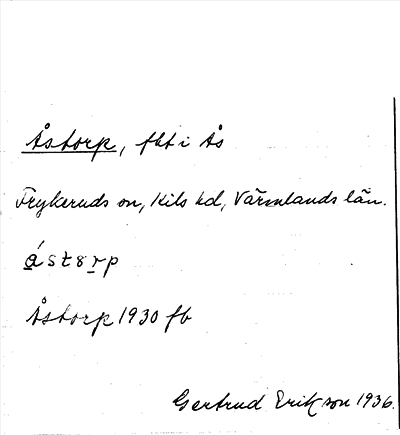 Åstorp, fbt i Ås
Frykeruds sn, Kils hd, Värmlands län.
ástsrp
Åstorp 1930 fb
Gertrud Erikson 1936.